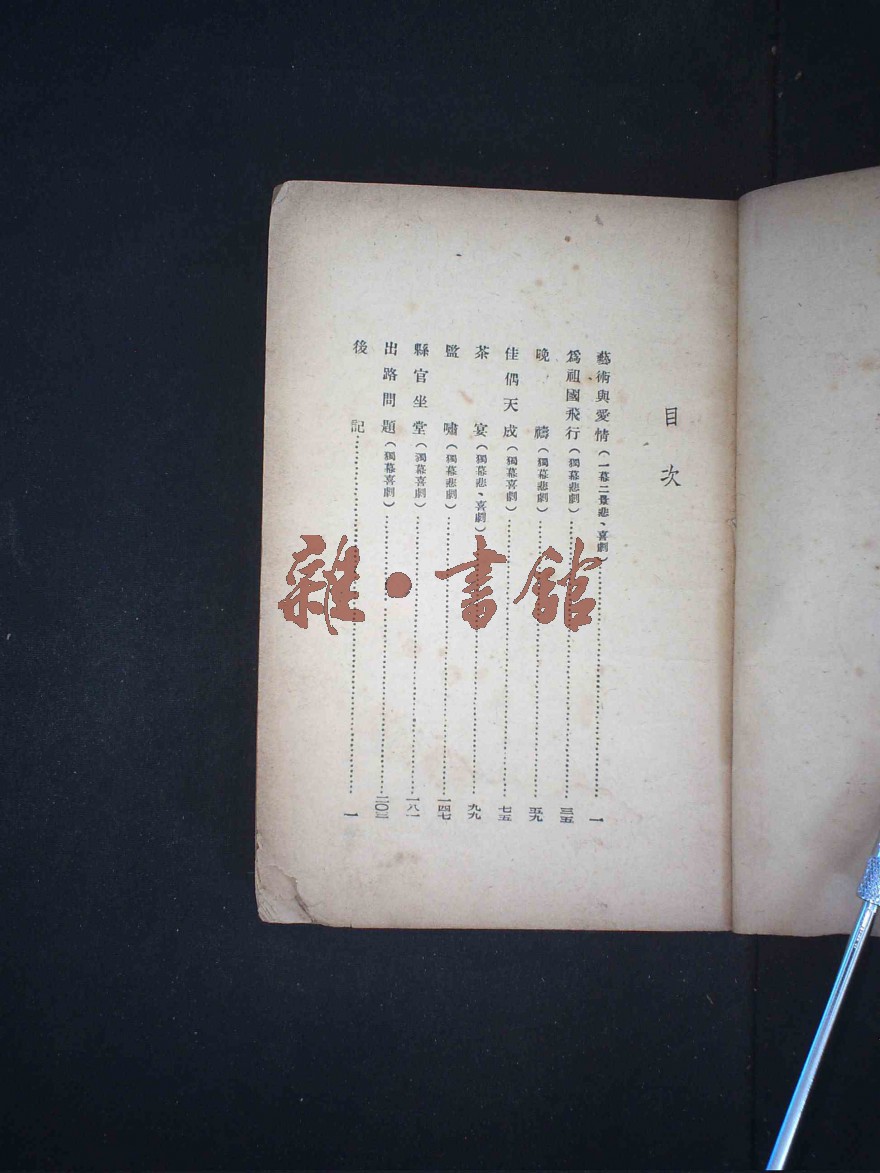 目次
藝術與愛情(一幕二景悲、喜劇)……一
爲祖國飛行(獨幕悲劇)……三五
晚禱(獨幕悲劇)……五九
佳偶天成(獨幕喜劇)……七五
茶宴(獨幕悲、喜劇)……九九
監嘯(獨幕悲劇)……一四七
縣官坐堂(獨幕喜劇)……一八一
出路問題(獨幕喜劇)……二〇三
後記……一
雜·書館